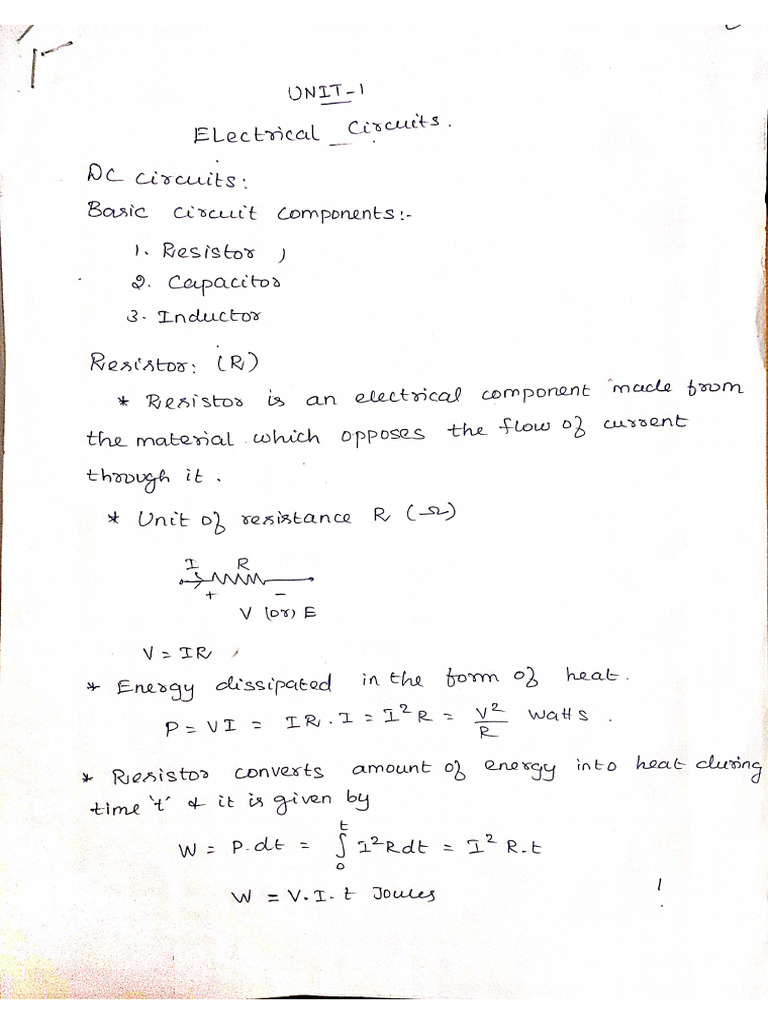 UNIT-1
Electrical Circuits.
DC circuits:
Basic circuit components:-
1. Resistor
2. Capacitor
3. Inductor
Resistor: (R)
* Resistor is an electrical component made from
the material which opposes the flow of current
through it.
* Unit of resistance R (Ω)
I R
+ -
V (or) E
V = IR
* Energy dissipated in the form of heat.
P = VI = IR.I = I²R = V²/R watts.
* Resistor converts amount of energy into heat during
time 't' & it is given by
W = P.dt = ∫₀ᵗ I²Rdt = I² R.t
W = V.I.t Joules
1